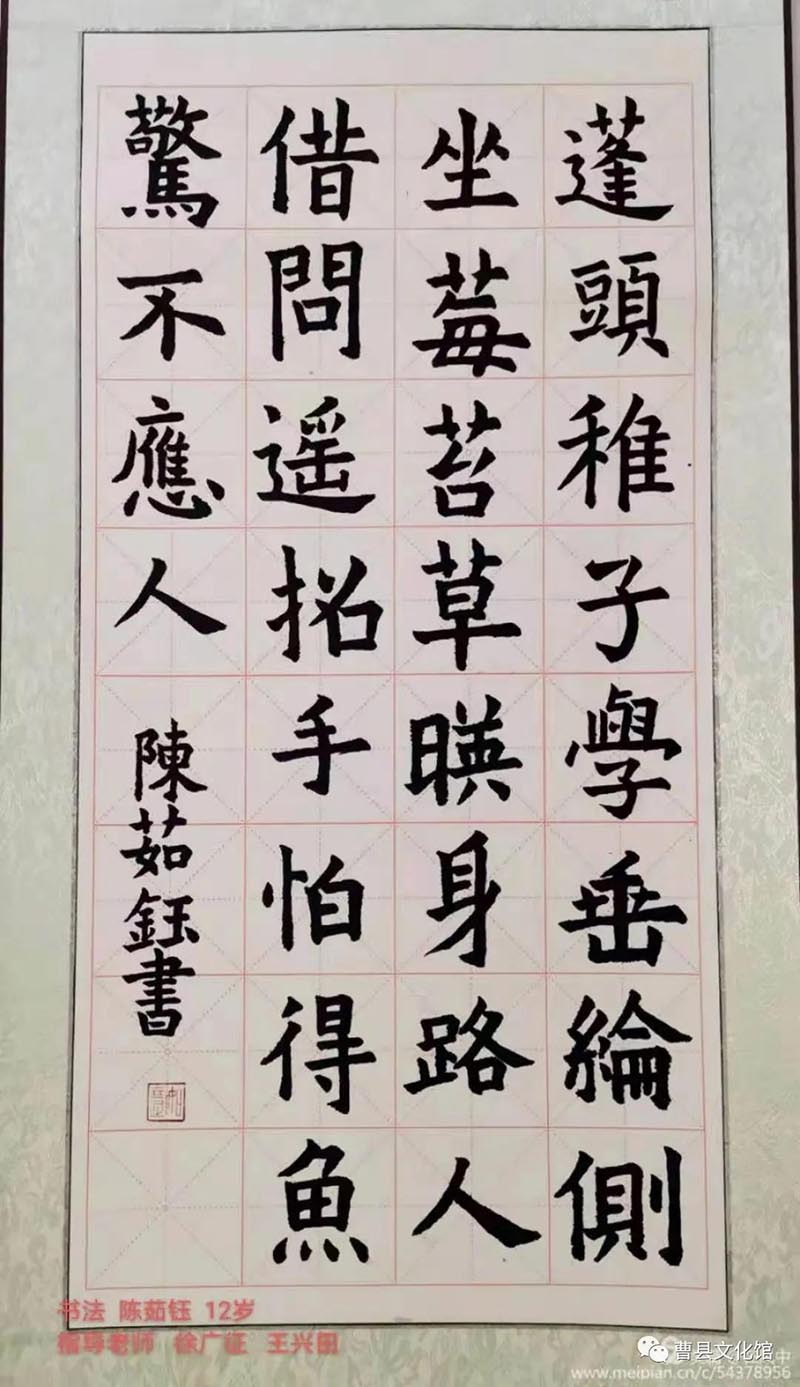 蓬頭稚子學垂綸側
坐莓苔草暎身路人
借問遥招手怕得魚
驚不應人
陳茹鈺書
书法 陈茹钰 12岁
指导老师 徐广征 王兴国
曹县文化馆
www.meipian.cn/c/54378956